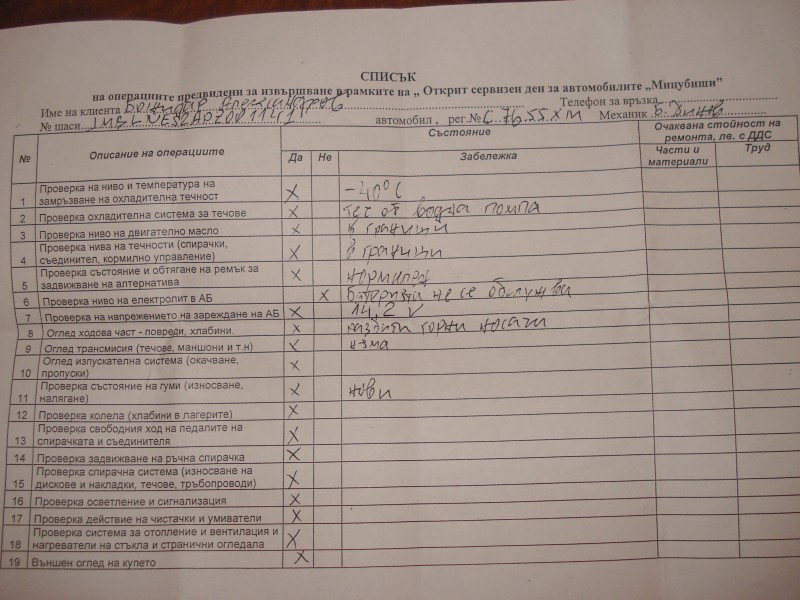 СПИСЪК
на операциите предвидени за извършване в рамките на „ Открит сервизен ден за автомобилите „Мицубиши”
Име на клиента Божидар Александров Телефон за връзка
№ шаси автомобил , рег.№ С 7655 ХМ Механик
№ Описание на операциите Състояние Очаквана стойност на ремонта, лв. с ДДС
Да Не Забележка Части и материали Труд
1 Проверка на ниво и температура на замръзване на охладителна течност X -40°C
2 Проверка охладителна система за течове X теч от водна помпа
3 Проверка ниво на двигателно масло X в граници
4 Проверка нива на течности (спирачки, съединител, кормилно управление) X в граници
5 Проверка състояние и обтягане на ремък за задвижване на алтернатива X нормално
6 Проверка ниво на електролит в АБ X не се обслужва
7 Проверка на напрежението на зареждане на АБ X 14,2 V
8 Оглед ходова част - повреди, хлабини. X разбити горни носачи
9 Оглед трансмисия (течове, маншони и т.н) X няма
10 Оглед изпускателна система (окачване, пропуски) X
11 Проверка състояние на гуми (износване, налягане) X нови
12 Проверка колела (хлабини в лагерите) X
13 Проверка свободния ход на педалите на спирачката и съединителя X
14 Проверка задвижване на ръчна спирачка X
15 Проверка спирачна система (износване на дискове и накладки, течове, тръбопроводи) X
16 Проверка осветление и сигнализация X
17 Проверка действие на чистачки и умиватели X
18 Проверка система за отопление и вентилация и нагреватели на стъкла и странични огледала X
19 Външен оглед на купето X